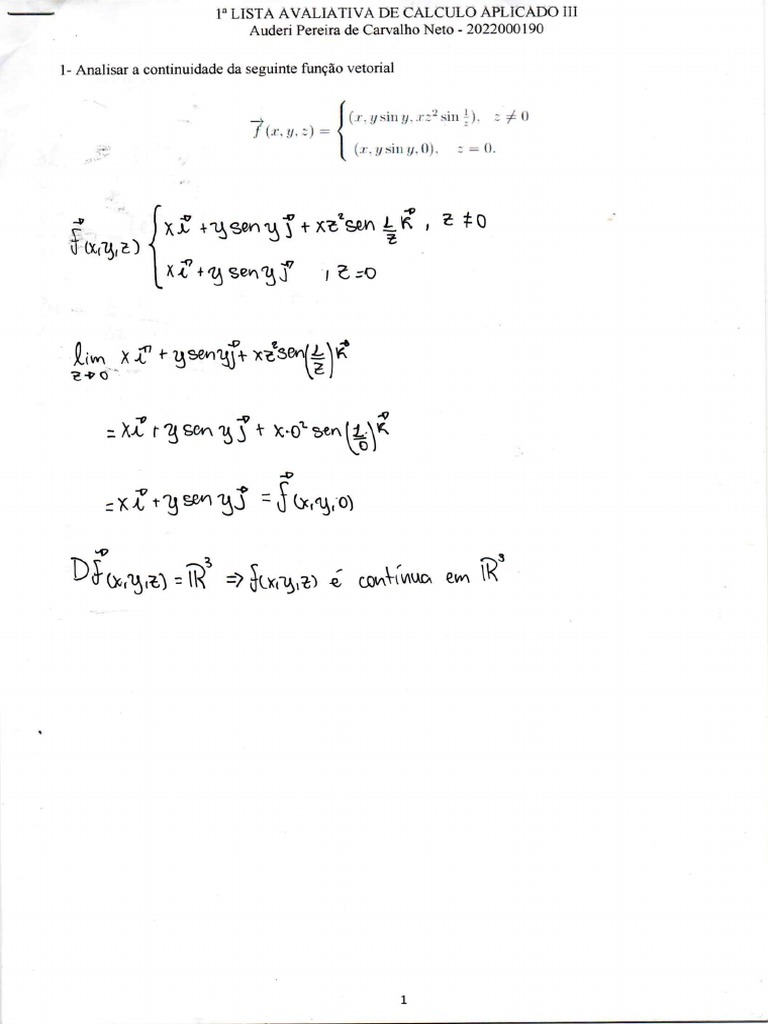 1ª LISTA AVALIATIVA DE CALCULO APLICADO III
Auderi Pereira de Carvalho Neto - 2022000190
1- Analisar a continuidade da seguinte função vetorial
f⃗(x, y, z) = { (x, y sin y, xz² sin 1/z), z ≠ 0
(x, y sin y, 0), z = 0.
f⃗(x,y,z) { x i⃗ + y sen y j⃗ + xz² sen 1/z k⃗ , z ≠ 0
x i⃗ + y sen y j⃗ , z = 0
lim z→0 x i⃗ + y sen y j⃗ + xz² sen(1/z) k⃗
= x i⃗ + y sen y j⃗ + x·0² sen(1/0) k⃗
= x i⃗ + y sen y j⃗ = f⃗(x,y,0)
D f⃗(x,y,z) = ℝ³ ⇒ f(x,y,z) é contínua em ℝ³
1